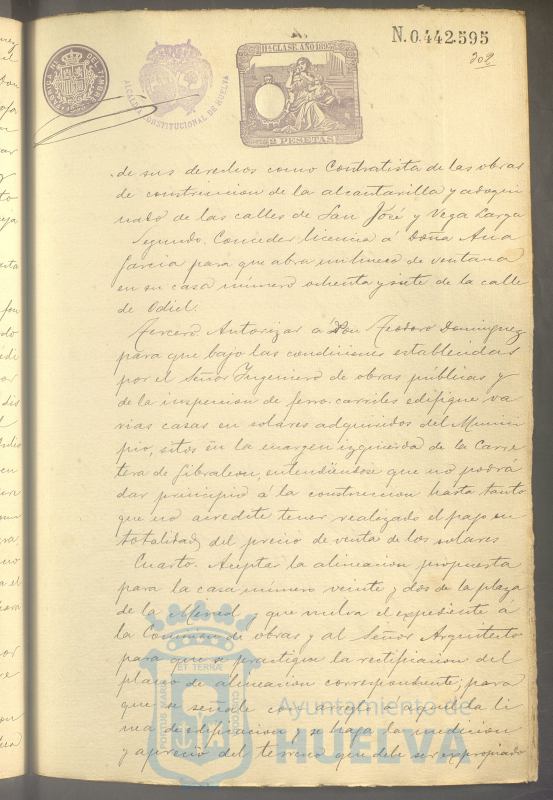 N.0.442.595
202
11ª CLASE. AÑO 189
2 PESETAS
ALCALDIA CONSTITUCIONAL DE HUELVA
de sus derechos como Contratista de las obras
de construccion de la alcantarilla y adoqui
nado de las calles de San José y Vega Larga
Segundo. Conceder licencia á Doña Ana
Garcia para que abra un hueco de ventana
en su casa número ochenta y siete de la calle
de Odiel.
Tercero. Autorizar á Don Teodoro Dominguez
para que bajo las condiciones establecidas
por el Señor Ingeniero de obras publicas y
de la inspeccion de ferro-carriles edifique va
rias casas en solares adquiridos del Munici
pio, sitos en la margen izquierda de la Carre
tera de Gibraleon, entendiendose que no podrá
dar principio á la construccion hasta tanto
que no acredite tener realizado el pago en
totalidad del precio de venta de los solares
Cuarto. Aceptar la alineacion propuesta
para la casa número veinte y dos de la plaza
de la Merced y que vuelva el expediente á
la Comision de obras y al Señor Arquitecto
para que se practique la rectificacion del
plano de alineacion correspondiente; para
que se señale con arreglo á aquella li
nea de edificacion y se haga la medicion
y aprecio del terreno que debe ser expropiado
Ayuntamiento de
HUELVA
PORTUS MARIS
ET TERRÆ
CUSTODIA